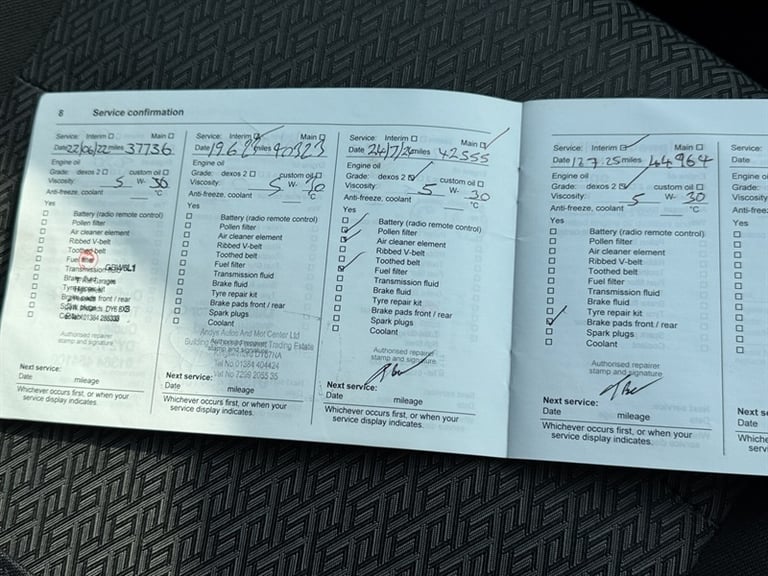 8 Service confirmation
Service: Interim ☐ Main ☐
Date 22/06/22 miles 37736
Engine oil
Grade: dexos 2 ☐ custom oil ☐
Viscosity: 5 W- 30
Anti-freeze, coolant °C
Yes
☐ Battery (radio remote control)
☐ Pollen filter
☐ Air cleaner element
☐ Ribbed V-belt
☐ Toothed belt
☐ Fuel filter
☐ Transmission fluid
☐ Brake fluid
☐ Tyre repair kit
☐ Brake pads front / rear
☐ Spark plugs
☐ Coolant
Authorised repairer
stamp and signature
Next service:
Date mileage
Whichever occurs first, or when your
service display indicates.
Service: Interim ☑ Main ☐
Date miles 40323
Engine oil
Grade: dexos 2 ☐ custom oil ☐
Viscosity: 5 W-
Anti-freeze, coolant °C
Yes
☐ Battery (radio remote control)
☐ Pollen filter
☐ Air cleaner element
☐ Ribbed V-belt
☐ Toothed belt
☐ Fuel filter
☐ Transmission fluid
☐ Brake fluid
☐ Tyre repair kit
☐ Brake pads front / rear
☐ Spark plugs
☐ Coolant
Andys Autos And Mot Center Ltd
Authorised repairer
Trading Estate
stamp and signature
Tel No 01384 404424
Next service:
Date mileage
Whichever occurs first, or when your
service display indicates.
Service: Interim ☐ Main ☑
Date 24/7/24 miles 42555
Engine oil
Grade: dexos 2 ☑ custom oil ☐
Viscosity: 5 W- 30
Anti-freeze, coolant °C
Yes
☑ Battery (radio remote control)
☑ Pollen filter
☐ Air cleaner element
☐ Ribbed V-belt
☑ Toothed belt
☐ Fuel filter
☐ Transmission fluid
☐ Brake fluid
☐ Tyre repair kit
☐ Brake pads front / rear
☐ Spark plugs
☐ Coolant
Authorised repairer
stamp and signature
Next service:
Date mileage
Whichever occurs first, or when your
service display indicates.
Service: Interim ☑ Main ☐
Date 1.7.25 miles 44964
Engine oil
Grade: dexos 2 ☑ custom oil ☐
Viscosity: 5 W- 30
Anti-freeze, coolant °C
Yes
☐ Battery (radio remote control)
☐ Pollen filter
☐ Air cleaner element
☐ Ribbed V-belt
☐ Toothed belt
☐ Fuel filter
☐ Transmission fluid
☐ Brake fluid
☐ Tyre repair kit
☑ Brake pads front / rear
☐ Spark plugs
☐ Coolant
Authorised repairer
stamp and signature
Next service:
Date mileage
Whichever occurs first, or when your
service display indicates.
Service:
Date
Engine oil
Grade:
Viscosity:
Yes